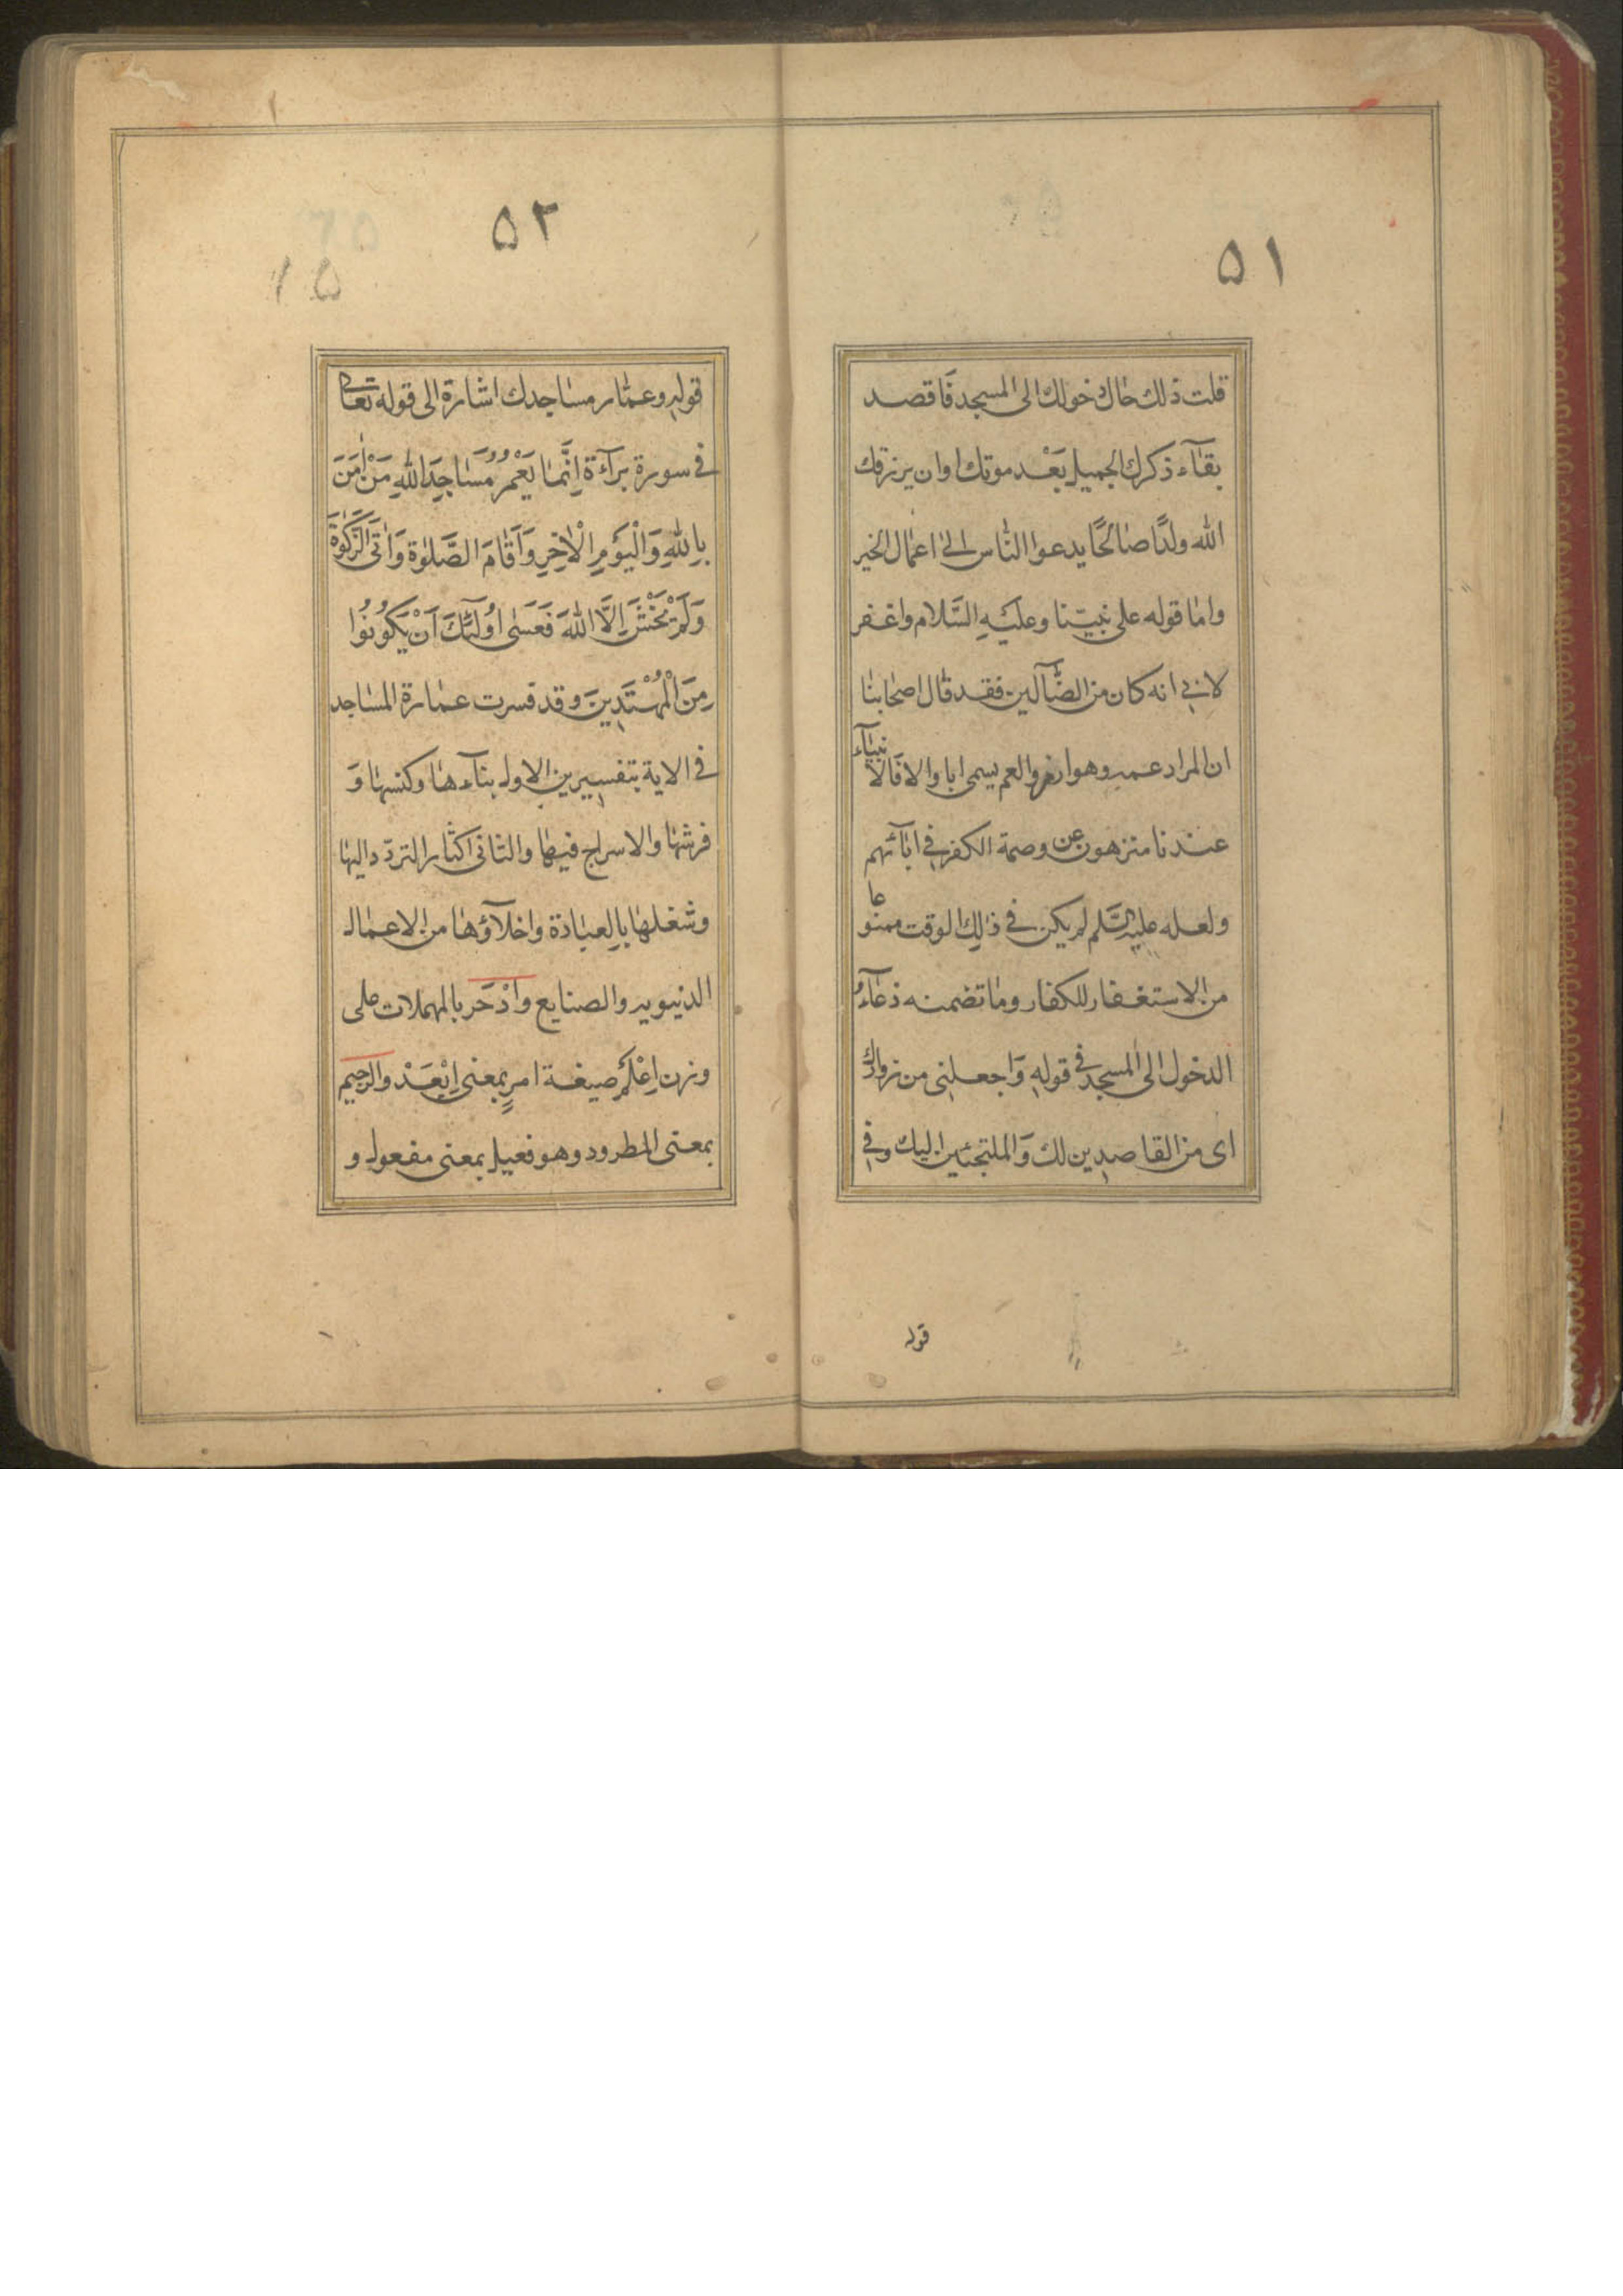 ٥١
قلت ذلك حال دخولك الى المسجد فاقصد
بقآء ذكرك الجميل بَعْد موتك او ان يرزقك
الله ولدًا صالحًا يدعوا النّاس الى اعمال الخير
واما قوله على نبيّنا وعليَهِ السَّلام واغفر
لابي انه كان من الضّآلين فقد قال اصحابنا
ان المراد عمه وهو ازر والعم يسمى ابا والا فالانبيآء
عندنا منزهون عن وصمة الكفر في ابآئهم
ولعله عليه السَّلم لم يكن في ذلِك الوقت ممنوعا
من الاستغفار للكفار وما تضمنه دعآءُ
الدخول الى المسجد في قولهِ وَاجعلنى من زوارك
اى من القاصدِين لك وَالملتجئين اليك وفي
قوله
٥٢
١٥
قولهِ وعمّار مساجدك اشارة الى قوله تعالى
في سورة برآءة اِنَّما يَعْمُرُ مَسَاجِدَ اللهِ مَنْ اٰمَنَ
بِاللهِ وَالْيَوْمِ الْاٰخِرِ وَاَقَامَ الصَّلوٰةَ وَاٰتَى الزَّكوٰةَ
وَلَمْ يَخْشَ اِلَّا اللهَ فَعَسَى اُولٰٓئِكَ اَنْ يَكُونُوا
مِنَ الْمُهْتَدِينَ وقد فسرت عمارة المساجد
في الاية بتفسيرين الاول بناءها وكنسها وَ
فرشها والاسراج فيها والثانى اكثار التردّد اليها
وشغلها بالعبادة واخلآؤها من الاعمال
الدنيويه والصنايع وَادْحَر بالمهملات على
وزن اِعْلَمْ صيغة امرٍ بمعنى اِبْعَدْ والرجيم
بمعنى المطرود وهو فعيل بمعنى مفعول و